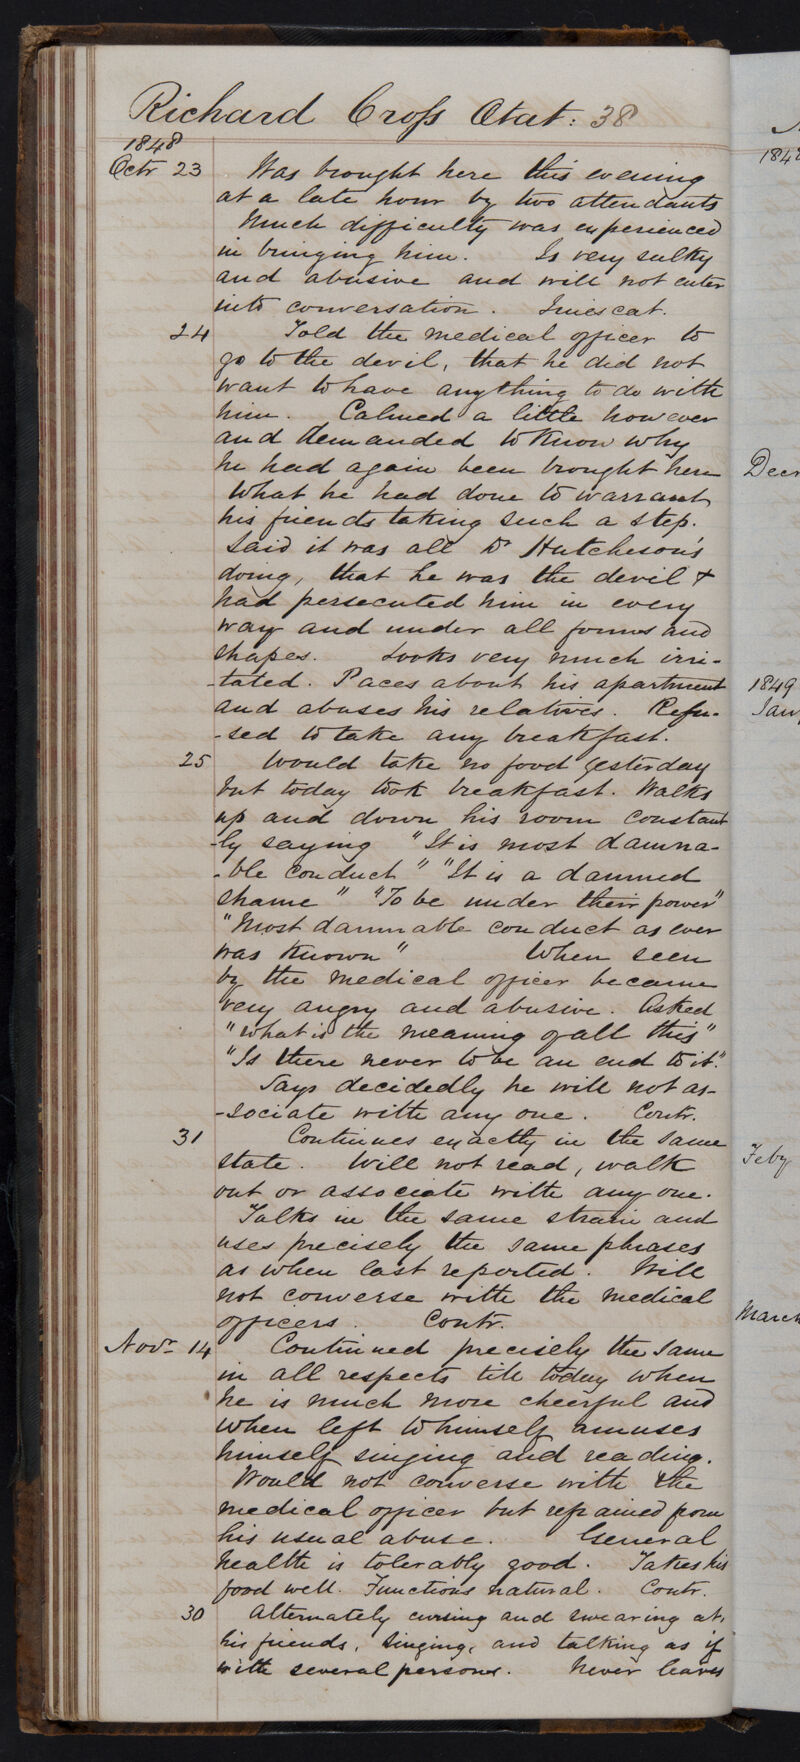 Richard Cross Ætat: 38
1848
Octr 23 Was brought here this evening
at a late hour by two attendants
Much difficulty was experienced
in bringing him. Is very sulky
and abusive and will not enter
into conversation.
24 Told the medical officer to
go to the devil, that he did not
want to have anything to do with
him. Calmed a little however
and demanded to know why
he had again been brought here
What he had done to warrant
his friends taking such a step.
Said it was all Dr Hutcheson's
doing, that he was the devil &
had persecuted him in every
way and under all forms and
shapes. Looks very much irri-
-tated. Paces about his apartment
and abuses his relatives. Refu-
-sed to take any breakfast.
25 Would take no food yesterday
but today took breakfast. Walks
up and down his room constant
-ly saying "It is most damna-
-ble conduct" "It is a damned
shame" "To be under their power"
"Most damnable conduct as ever
was known" When seen
by the medical officer became
very angry and abusive. Asked
"What is the meaning of all this"
"Is there never to be an end to it."
Says decidedly he will not as-
-sociate with any one. Contr.
31 Continues exactly in the same
state. Will not read, walk
out or associate with any one.
Talks in the same strain and
uses precisely the same phrases
as when last reported. Will
not converse with the medical
officers. Contr.
Novr 14 Continued precisely the same
in all respects till today when
he is much more cheerful and
when left to himself amuses
himself singing and reading.
Would not converse with the
medical officer but refrained from
his usual abuse. General
health is tolerably good. Takes his
food well. Functions natural. Contr.
30 Alternately cursing and swearing at
his friends, singing, and talking as if
with several persons. Never leaves
184
Decr
1849
Jany
Feby
March